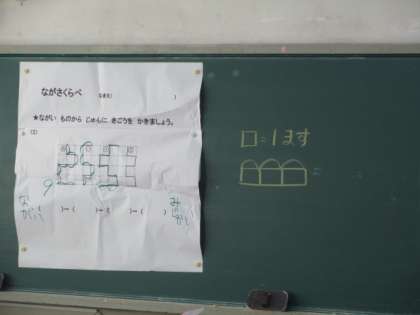 ながさくらべ なまえ( )
★ながい ものから じゅんに きごうを かきましょう。
(1)
ながい ( )→( )→( )→( ) みじかい
□=1ます
=